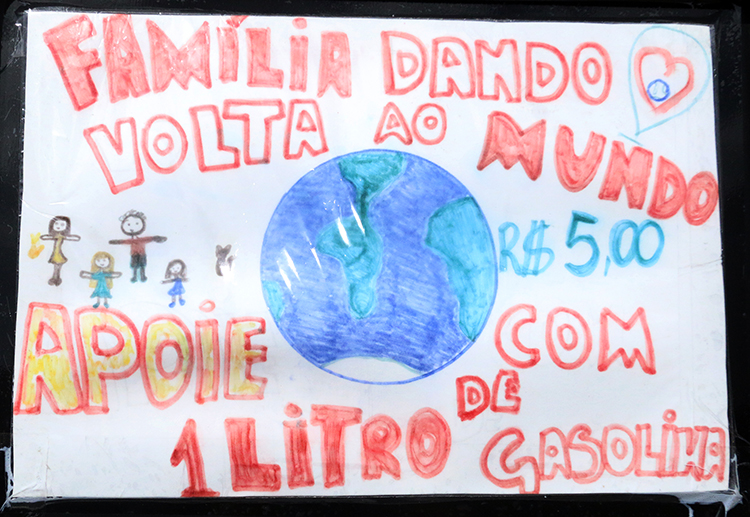 FAMÍLIA DANDO
VOLTA AO MUNDO
R$ 5,00
APOIE COM
1 LITRO DE GASOLINA